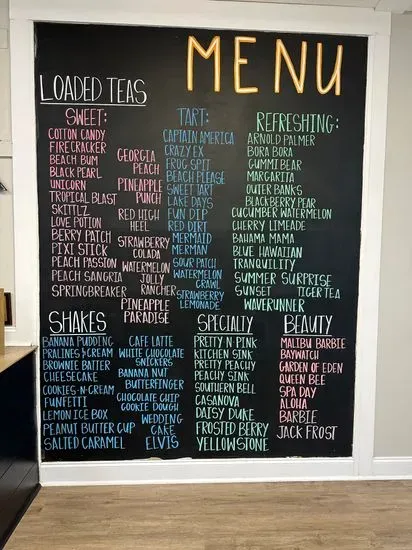 MENU
LOADED TEAS
SWEET:
COTTON CANDY
FIRECRACKER
BEACH BUM
BLACK PEARL
UNICORN
TROPICAL BLAST
SKITTLZ
LOVE POTION
BERRY PATCH
PIXI STICK
PEACH PASSION
PEACH SANGRIA
SPRINGBREAKER
GEORGIA
PEACH
PINEAPPLE
PUNCH
RED HIGH
HEEL
STRAWBERRY
COLADA
WATERMELON
JOLLY
RANCHER
PINEAPPLE
PARADISE
TART:
CAPTAIN AMERICA
CRAZY EX
FROG SPIT
BEACH PLEASE
SWEET TART
LAKE DAYS
FUN DIP
RED DIRT
MERMAID
MERMAN
SOUR PATCH
WATERMELON
CRAWL
STRAWBERRY
LEMONADE
REFRESHING:
ARNOLD PALMER
BORA BORA
GUMMI BEAR
MARGARITA
OUTER BANKS
BLACKBERRY PEAR
CUCUMBER WATERMELON
CHERRY LIMEADE
BAHAMA MAMA
BLUE HAWAIIAN
TRANQUILITY
SUMMER SURPRISE
SUNSET TIGER TEA
WAVERUNNER
SHAKES
BANANA PUDDING
PRALINES & CREAM
BROWNIE BATTER
CHEESECAKE
COOKIES-N-CREAM
FUNFETTI
LEMON ICE BOX
PEANUT BUTTER CUP
SALTED CARAMEL
CAFE LATTE
WHITE CHOCOLATE
SNICKERS
BANANA NUT
BUTTERFINGER
CHOCOLATE CHIP
COOKIE DOUGH
WEDDING
CAKE
ELVIS
SPECIALTY
PRETTY N PINK
KITCHEN SINK
PRETTY PEACHY
PEACHY SINK
SOUTHERN BELL
CASANOVA
DAISY DUKE
FROSTED BERRY
YELLOWSTONE
BEAUTY
MALIBU BARBIE
BAYWATCH
GARDEN OF EDEN
QUEEN BEE
SPA DAY
ALOHA
BARBIE
JACK FROST